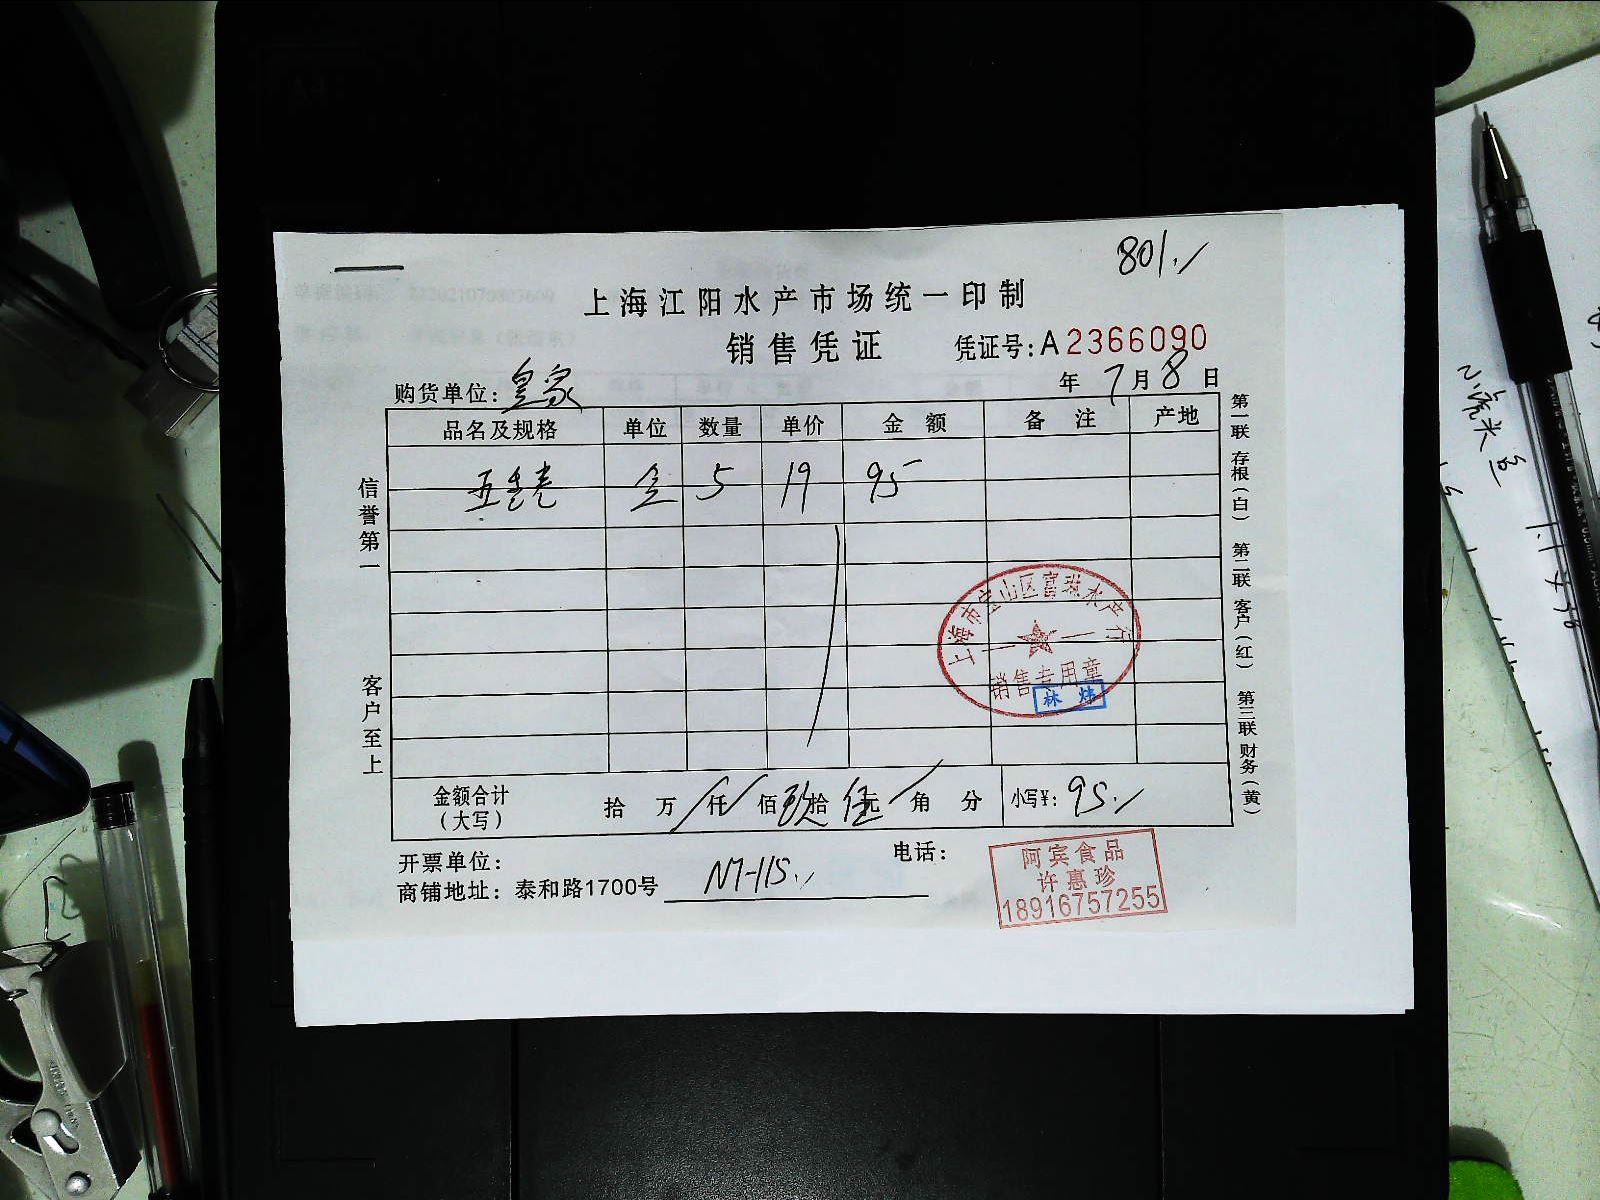 801./
上海江阳水产市场统一印制
销售凭证 凭证号:A2366090
年 7月8日
购货单位: 皇家
品名及规格 单位 数量 单价 金额 备注 产地
5 19 95
信誉第一
客户至上
第一联 存根(白) 第二联 客户(红) 第三联 财务(黄)
上海市宝山区富珠水产行
销售专用章
林炜
金额合计(大写) 拾 万 仟 佰 玖拾 伍元 角 分 小写¥: 95./
开票单位: 电话:
商铺地址: 泰和路1700号 N7-115./
阿宾食品
许惠珍
18916757255